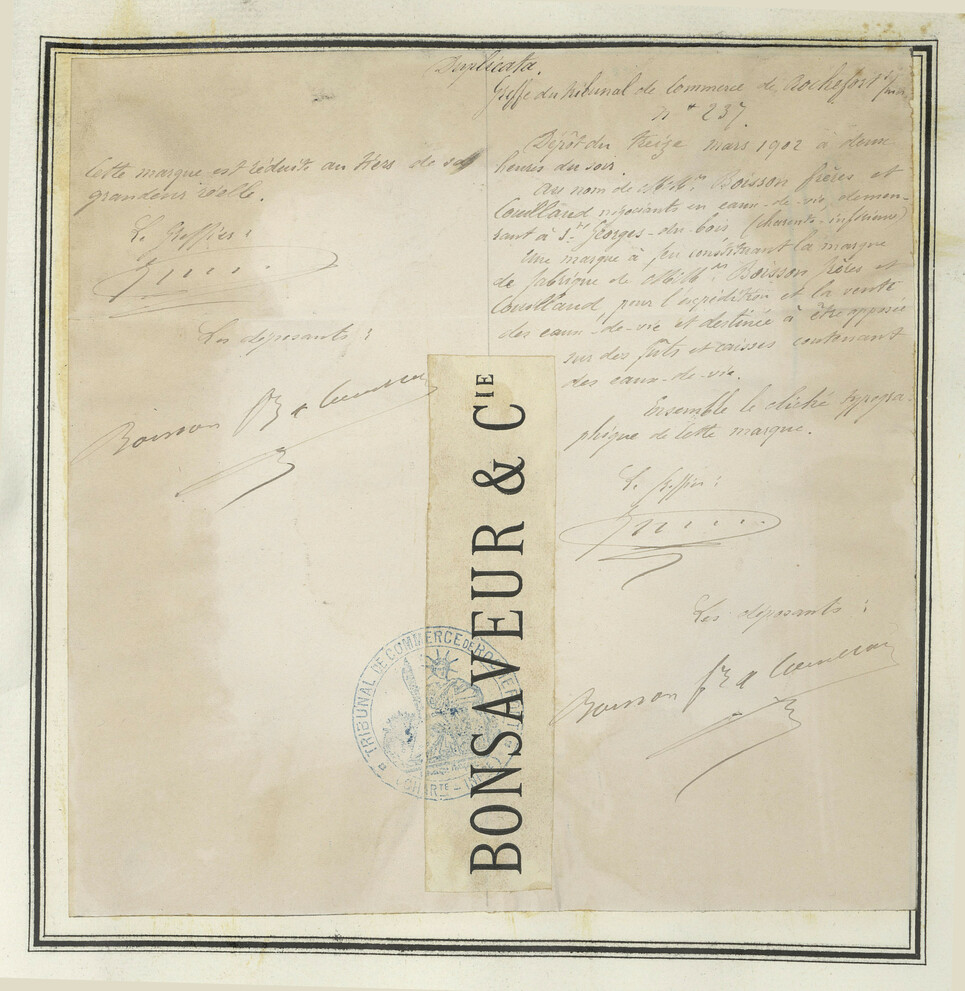 Duplicata.
Greffe du tribunal de commerce de Rochefort s/mer
N° 237
Dépôt du treize mars 1902 à deux
heures du soir.
Au nom de M.M.rs Boisson frères et
Couilland négociants en eaux-de-vie, demeu-
rant à St Georges-du-bois (charente-inférieure)
Une marque à feu constituant la marque
de fabrique de M.M.rs Boisson frères et
Couilland, pour l'expédition et la vente
des eaux-de-vie et destinée à être apposée
sur des fûts et caisses contenant
des eaux-de-vie.
Ensemble le cliché typogra-
phique de cette marque.
Le Greffier :
Les déposants :
Boisson frs &
Cette marque est réduite au tiers de sa
grandeur réelle.
Le Greffier :
Les déposants :
Boisson frs &
BONSAVEUR & CIE
TRIBUNAL DE COMMERCE DE ROCHEFORT
CHARTE - INFRE